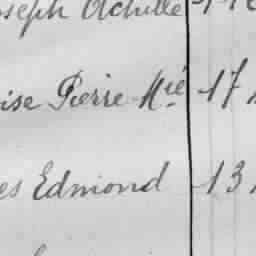 oseph Achille
ise Pierre Mié 17
es Edmond 13